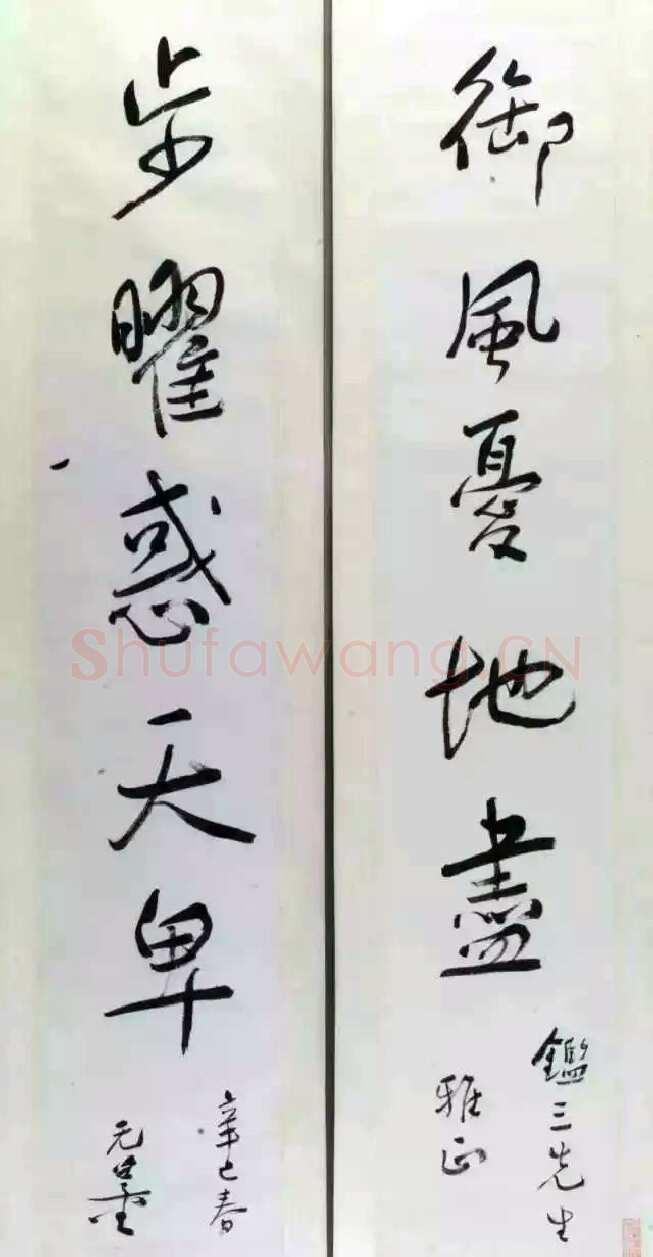 御風憂地盡
鑑三先生
雅正
步曜惑天卑
辛巳春
Shufawang.CN